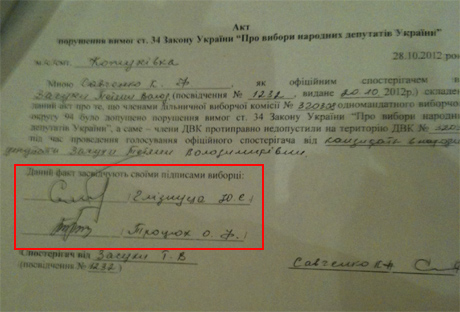 Акт
порушення вимог ст. 34 Закону України “Про вибори народних депутатів України”
Копачівка 28.10.2012 ро
Мною Савченко К. Ф , як офіційним спостерігачем в
Засухи Тетяни Волод (посвідчення № 1232 , видане 20.10 2012р.) складен
даний акт про те, що членами дільничної виборчої комісії № одномандатного виборчо
округу 94 було допущено порушення вимог ст. 34 Закону України “Про вибори народни
депутатів України”, а саме – члени ДВК протиправно недопустили на територію ДВК №
час проведення голосування офіційного спостерігача від кандидата в народ
депутати Засухи Тетяни Володимирівни
Даний факт засвідчують своїми підписами виборці:
О. Ф. )
Спостерігач від Засухи Т. В
(посвідчення № 1232 ) Савченко К.Ф